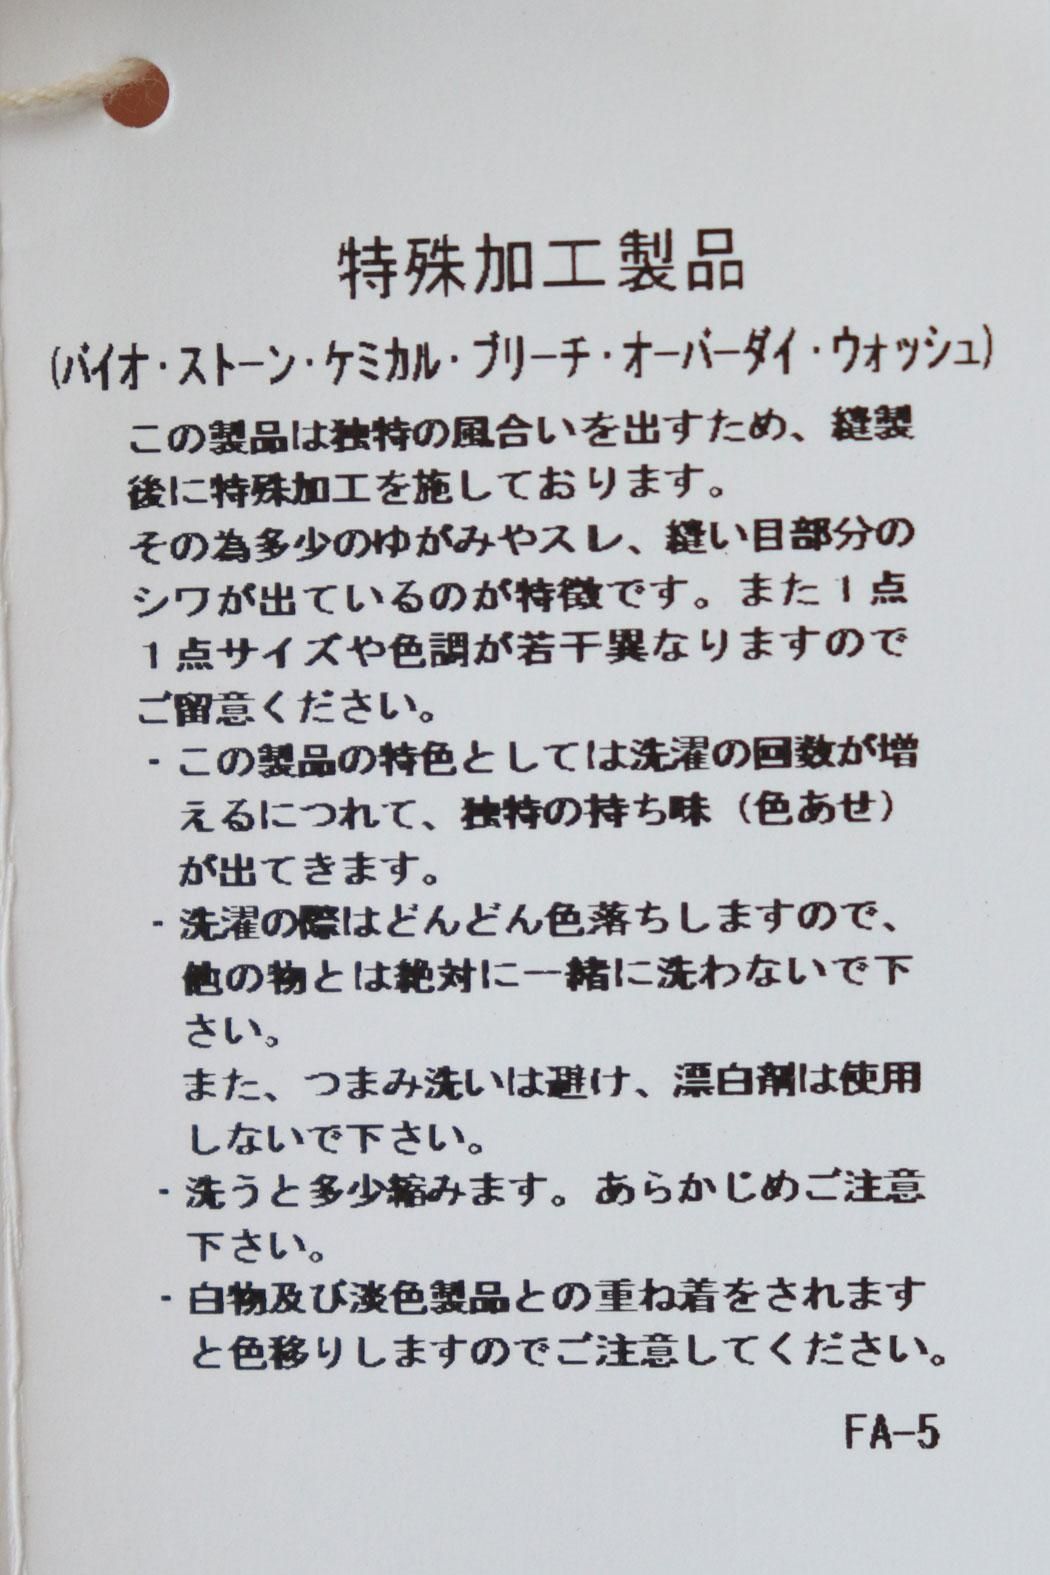 特殊加工製品
(バイオ・ストーン・ケミカル・ブリーチ・オーバーダイ・ウォッシュ)
この製品は独特の風合いを出すため、縫製
後に特殊加工を施しております。
その為多少のゆがみやスレ、縫い目部分の
シワが出ているのが特徴です。また1点
1点サイズや色調が若干異なりますので
ご留意ください。
・この製品の特色としては洗濯の回数が増
えるにつれて、独特の持ち味(色あせ)
が出てきます。
・洗濯の際はどんどん色落ちしますので、
他の物とは絶対に一緒に洗わないで下
さい。
また、つまみ洗いは避け、漂白剤は使用
しないで下さい。
・洗うと多少縮みます。あらかじめご注意
下さい。
・白物及び淡色製品との重ね着をされます
と色移りしますのでご注意してください。
FA-5